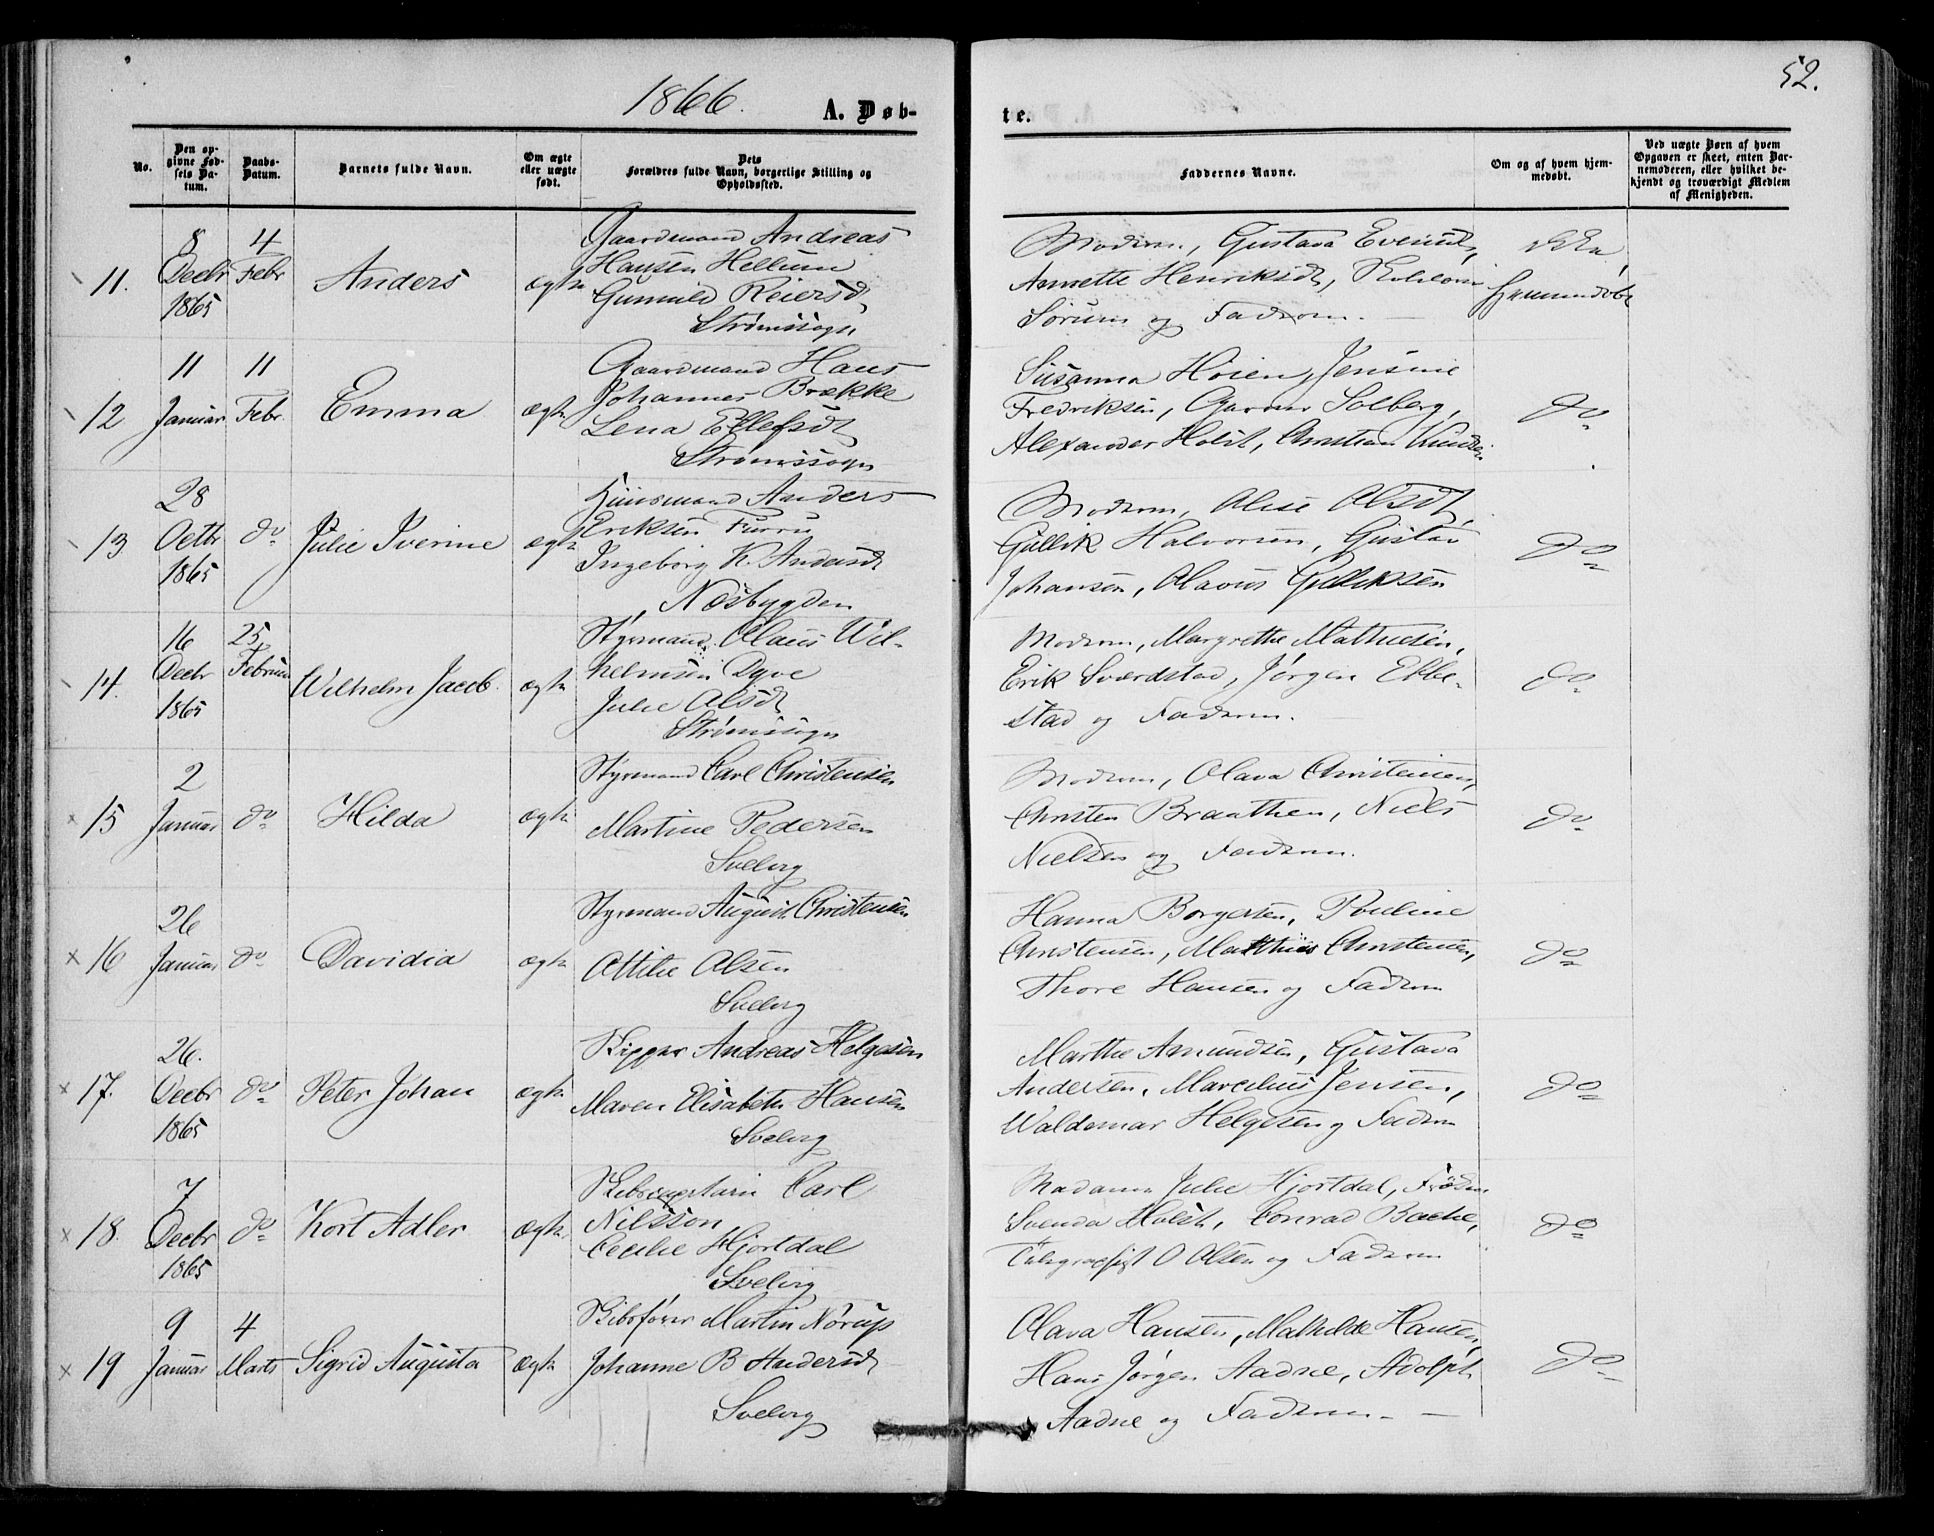 1866.
A. Døb-
te.
52.
No.
Den op-
givne Fød-
sels Da-
tum.
Daabs-
Datum.
Barnets fulde Navn.
Om ægte
eller uægte
født.
Dets
Forældres fulde Navn, borgerlige Stilling og
Opholdssted.
Faddernes Navne.
Om og af hvem hjem-
medøbt.
Ved uægte Børn af hvem
Opgaven er skeet, enten Bar-
nemoderen, eller hvilket be-
kjendt og troværdigt Medlem
af Menigheden.
11.
8
Decbr
1865
4
Febr
Anders
ægte
Gaardmand Andreas
Hansen Hellum
Gunnild Reiersd
Strømssogn
Modren, Gustava
Annette Henriksdt,
Sørum og Fadren.
Hjemmedøbt
12
11
Januar
11
Febr.
Emma
ægte
Gaardmand Hans
Johannes Brække
Lena Ellefsdt
Strømssogn
Susanna Hoien, Jensine
Fredriksen, Solberg,
Alexander Holst, Christian Knudsen
do
13
28
Octbr
1865
do
Julie Iverine
ægte
Huusmand Anders
Eriksen Furru
Ingeborg K. Andersdt
Næsbygden
Modren, Olsdt,
Gullik Halvorsen, Gustav
Johansen, Olavus Gulliksen
do
14.
16
Decbr
1865
25
Februar
Wilhelm Jacob.
ægte
Styrmand Olaus Wil-
helmsen Dyve
Julie Olsdt
Strømssogn
Modren, Margrethe Mathiesen,
Erik Sværdstad, Jørgen Ebbe-
stad og Fadren.
do
15
2
Januar
do
Hilda
ægte
Styrmand Carl Christensen
Martine Pedersen
Svelvig
Modren, Olava Christensen,
Christen Braathen, Niels
Nielsen og Fadren.
do
16
26
Januar
do
Davidia
ægte
Styrmand August Christensen
Attilie Olsen
Svelvig
Hanna Borgersen, Pouline
Christensen, Matthias Christensen,
Thore Hansen og Fadren
do
17.
26.
Decbr
1865
do
Peter Johan
ægte
Skipper Andreas Helgesen
Maren Elisabeth Hansen
Svelvig
Marthe Amundsen, Gustava
Andersen, Marcelius Jensen,
Waldemar Helgesen og Fadren
do
18.
7
Decbr
1865
do
Kort Adler
ægte
Carl
Nilsson
Cecilie Hjortdal
Svelvig
Madame Julie Hjortdal, Frøken
Svenda Holst, Conrad Bache,
Telegrafist O Olsen og Fadren
do
19
9
Januar
4
Marts
Sigrid Augusta
ægte
Skibsfører Martin Nørup
Johanne B Andersdt
Svelvig
Olava Hansen, Mathilde Hansen,
Hans Jørgen Aadne, Adolph
Aadne og Fadren.
do